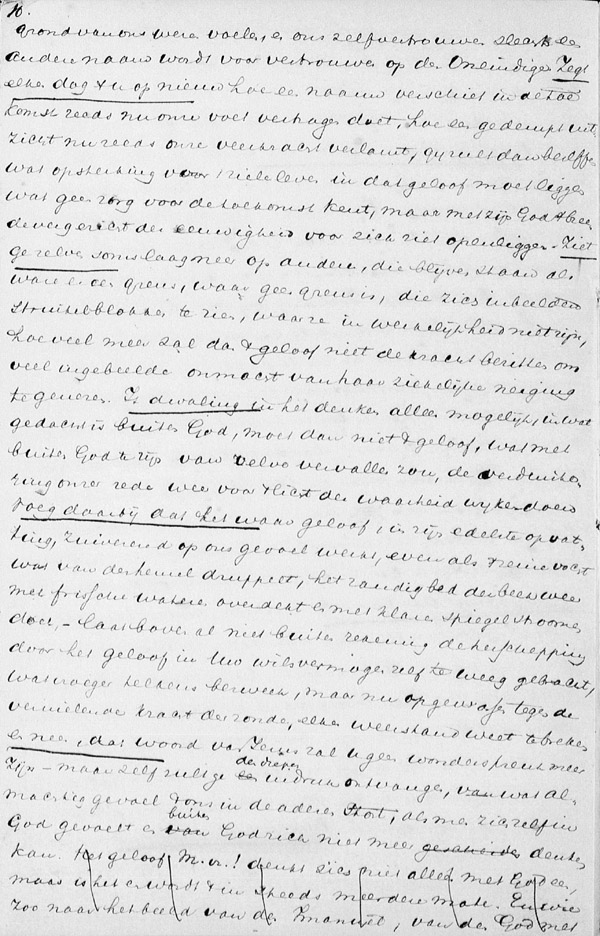 10.
grond van ons weren voelen, en ons zelfvertrouwen slechts een
anderen naam wordt voor vertrouwen op den Oneindige. Zegt
elken dag u op nieuw hoe een nauw verschiet in de toe
komst reeds nu onze voet vertragen doet, hoe een gedempt uit,
zicht nu reeds onze veerkracht verlamt, gij zult dan beseffen
wat opsterking voor 't zieleleven in dat geloof moet liggen
wat geen zorg voor de toekomst kent, maar met zijn God
de vergezicht der eeuwigheid voor zich ziet openliggen. Ziet
gezelven soms laag neer op anderen, die blijven staan als
ware er een grens, waar geen grens is, die zich inbeelden
struikelblokken te zien, waar ze in werkelijkheid niet zijn,
hoe veel meer zal dan 't geloof niet de kracht bezitten om
veel ingebeelde onmacht van haar ziekelijke neiging
te genezen. Is dwaling in het denken alleen mogelijk, in wat
gedacht is buiten God, moet dan niet 't geloof, wat met
buiten God te zijn van zelve vervallen zou, de verduiste-
ring onzer rede weer voor 't licht der waarheid wijken doen
Voeg daarbij dat het waar geloof, in zijn edelste opvat-
ting, zuiverend op ons gevoel werkt, even als 't reine vocht
wat van den hemel druppelt, het zandig bed der beek weer
met frissche wateren overdekt en met klaren spiegel stroomen
doet, – laat boven al niet buiten rekening de herschepping
door het geloof in Uw wilsvermogen zelf te weeg gebracht,
wat vroeger telkens bezweek, maar nu opgewassen tegen de
vernielende kracht der zonde, elken weerstand weet te breken
en neen, dat woord van Jezus zal u geen wonderspreuk meer
zijn – maar zelf zult ge den diepen indruk ontvangen, van wat al-
machtig gevoel 't ons in de aderen stort, als men zich zelf in
God gevoelt en buiten God zich niet meer gescheiden denken
kan. Het geloof M. vr.! denkt zich niet alleen met God een,
maar is het en wordt 't in steeds meerdere mate. En wie
zoo naar het beeld van den Immanuël, van den God met